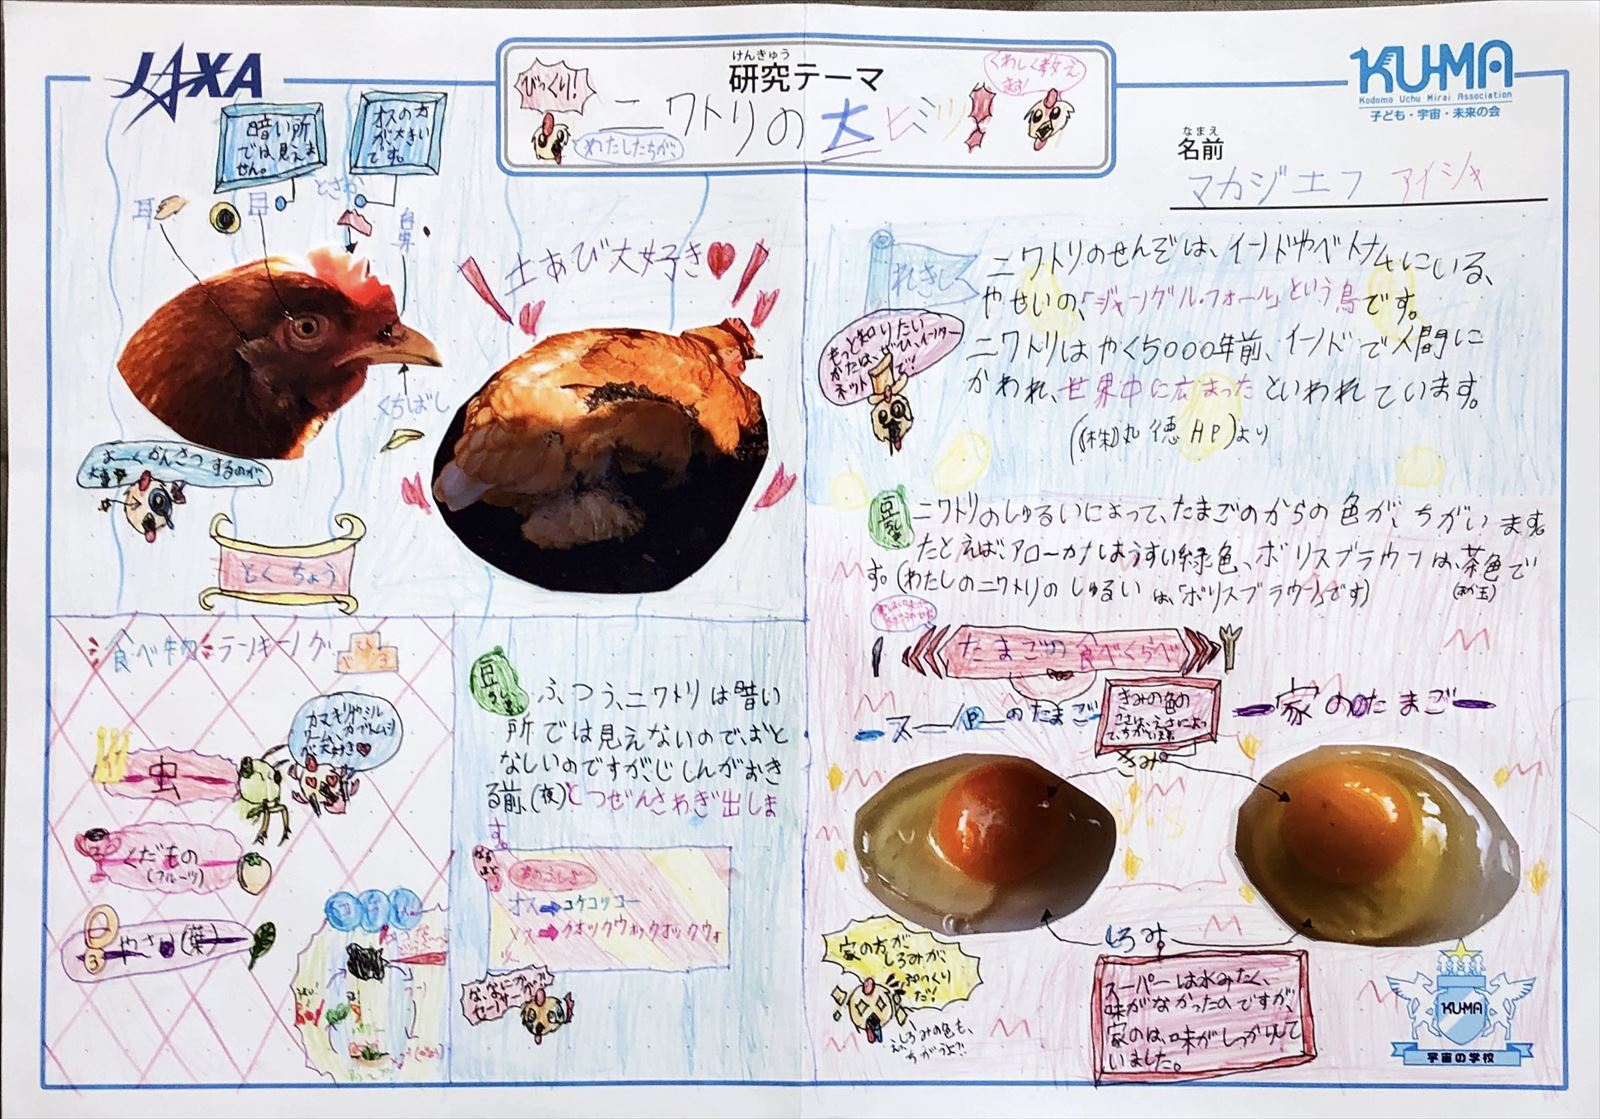 JAXA
びっくり!
けんきゅう
研究テーマ
ニワトリの大ヒミツ
わたしたちが、
くわしく教え
ます!
KU-MA
Kodomo Uchu Mirai Association
子ども・宇宙・未来の会
なまえ
名前
マカジエフ アイシャ
暗い所
では見えま
せん。
オスの方
が大きい
です。
耳
目
とさか
鼻
くちばし
土あび大好き
よーくかんさつ
するのが、
大事
とくちょう
れきし
ニワトリのせんぞは、インドやベトナムにいる、
やせいの、「ジャングル・フォール」という鳥です。
ニワトリはやく5000年前、インドで人間に
かわれ、世界中に広まったといわれています。
((株)丸徳HP)より
もっと知りたい
かたは、ぜひ、インター
ネットで!
豆ちしき
ニワトリのしゅるいによって、たまごのからの色が、ちがいます。
たとえば、アローカナはうすい緑色、ボリスブラウンは、茶色で
す。(わたしのニワトリのしゅるいは、「ボリスブラウン」です)
たまごの食べくらべ
スーパーのたまご
きみの色の
家のたまご
きみ
しろみ
家の方が
しろみが、
ぷっくり
だ!
しろみの色も、
ちがうよ!!
スーパーは水みたく、
味がなかったのですが、
家のは、味がしっかりして
いました。
食べ物ランキング
虫
カマキリやミル
ワーム、カブトムシ
が大好き
くだもの
(フルーツ)
やさい(葉)
3
豆ちしき
ふつう、ニワトリは暗い
所では見えないので、おと
なしいのですが、じしんがおき
る前、(夜)とつぜんさわぎ出しま
す。
なるほど!
オス→コケコッコー
メス→クオックウォックオックウォ
な、なにかが!!
KU-MA
宇宙の学校